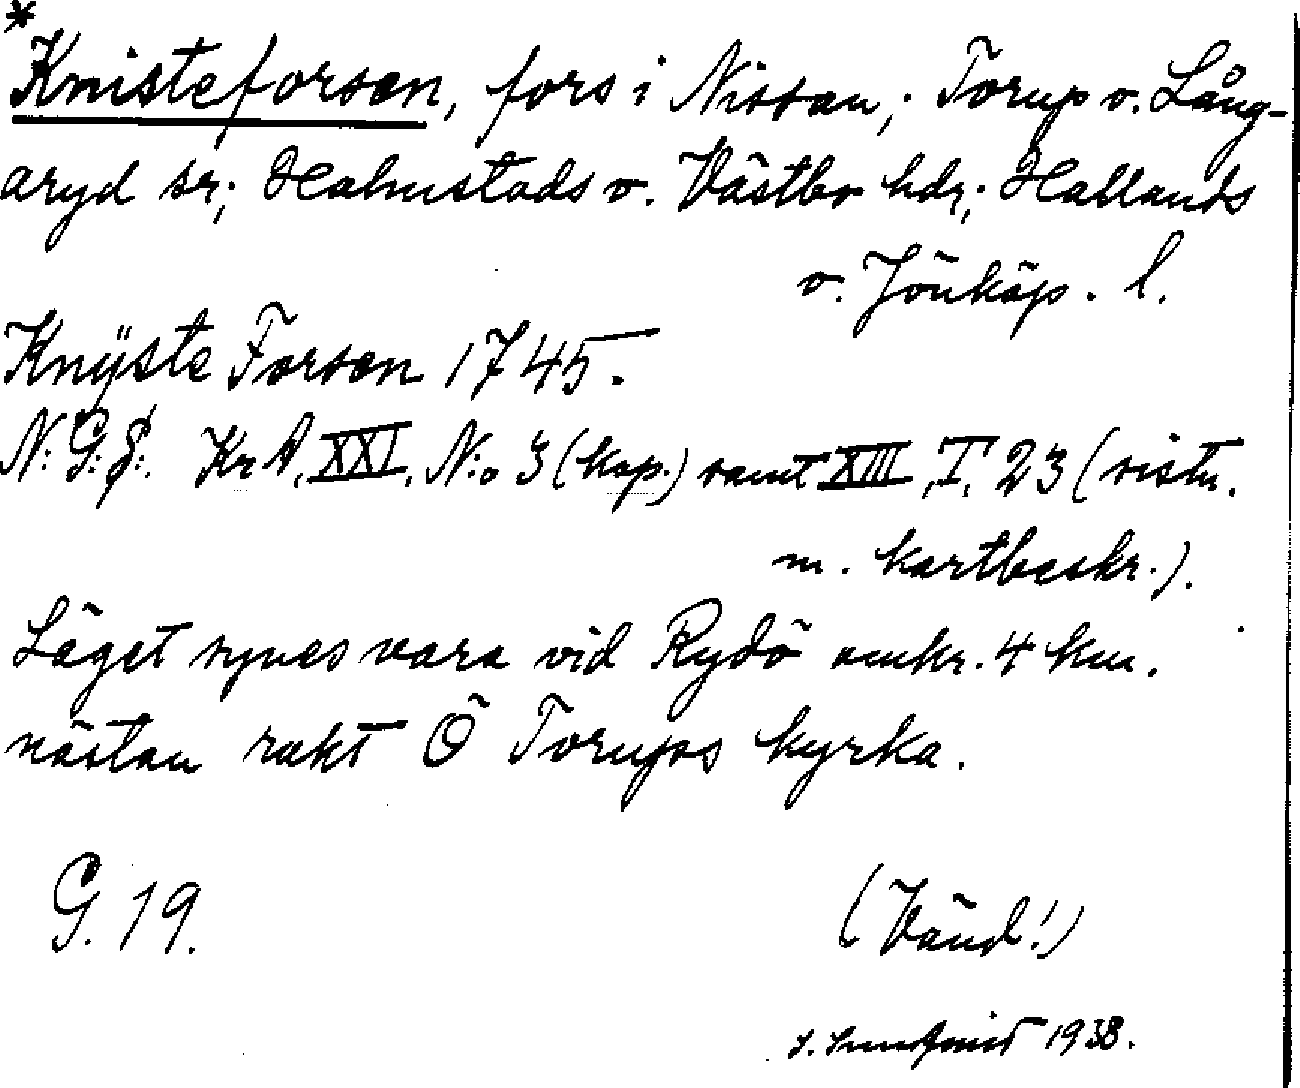 *
Knisteforsen, fors i Nissan; Torup o. Lång-
aryd sr; Halmstads o. Västbo hdr; Hallands
o. Jönköp. l.
Knÿste Forsen 1745.
N:G:S:. KrA, XXI, N:o 3 (kop.) samt XIII, I, 23 (sistn.
m. kartbeskr.).
Läget synes vara vid Rydö omkr. 4 km.
nästan rakt Ö Torups kyrka.
G. 19.
(Vänd!)
1938.